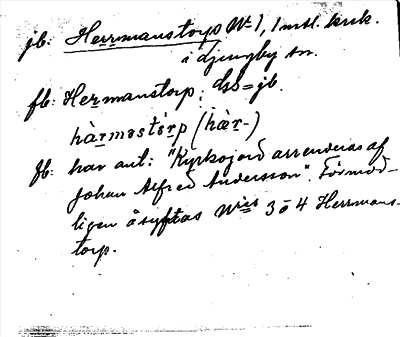 jb: Herrmanstorp No 1, 1 mtl. krk.
i djungby sn.
fb: Hermanstorp; ds = jb.
hàrmastórp (hàr-)
fb: har ant: "Kyrkojord arrenderas af
Johan Alfred Andersson". Förmod-
ligen åsyftas Nris 3 o 4 Herrmans-
torp.